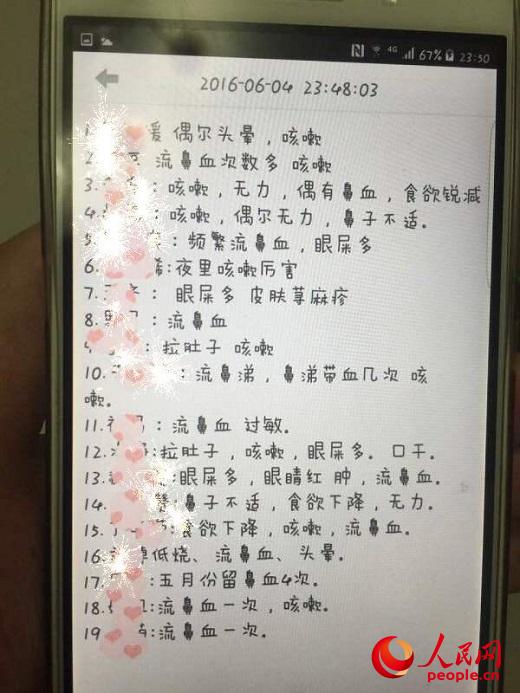 4G 67% 23:50
2016-06-04 23:48:03
1. 爱 偶尔头晕，咳嗽
2. 流鼻血次数多 咳嗽
3. ：咳嗽，无力，偶有鼻血，食欲锐减
4. ：咳嗽，偶尔无力，鼻子不适。
5. ：频繁流鼻血，眼屎多
6. :夜里咳嗽厉害
7. ： 眼屎多 皮肤荨麻疹
8. ：流鼻血
9. ：拉肚子 咳嗽
10. ：流鼻涕，鼻涕带血几次 咳
嗽。
11. ：流鼻血 过敏。
12. :拉肚子，咳嗽，眼屎多。口干。
13. :眼屎多，眼睛红 肿，流鼻血。
14. :鼻子不适，食欲下降，无力。
15. :食欲下降，咳嗽，流鼻血。
16. 低烧、流鼻血、头晕。
17. :五月份留鼻血4次。
18. :流鼻血一次，咳嗽。
19 :流鼻血一次。
人民网
people.cn